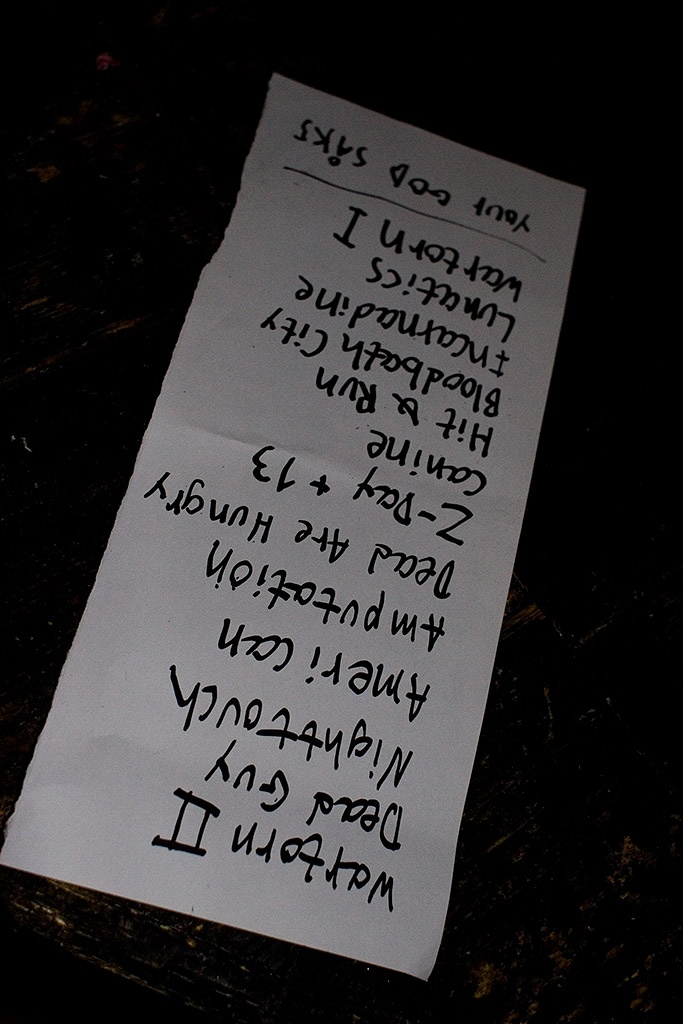 Wartorn II
Dead Guy
Nighttouch
American
Amputation
Dead Are Hungry
Z-Day + 13
Canine
Hit & Run
Bloodbath City
Incarnadine
Lunatics
Wartorn I
YOUR GOD SÅKS